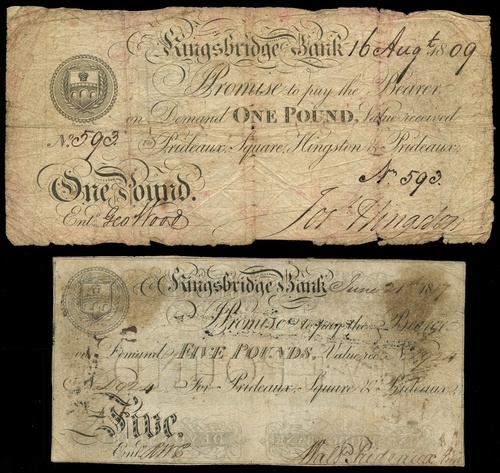 Kingsbridge Bank 16 Augt. 1809
I Promise to pay the Bearer
on Demand ONE POUND, Value received
No. 593. Prideaux, Square, Hingston & Prideaux.
No. 593.
One Pound.
Entd. Geo Wood Jos. Hingston
Kingsbridge Bank June 21st 1817
I Promise to pay the Bearer
on Demand FIVE POUNDS, Value 2924
No 2924 For Prideaux, Square & Prideaux.
Five.
Entd. Walt. Prideaux